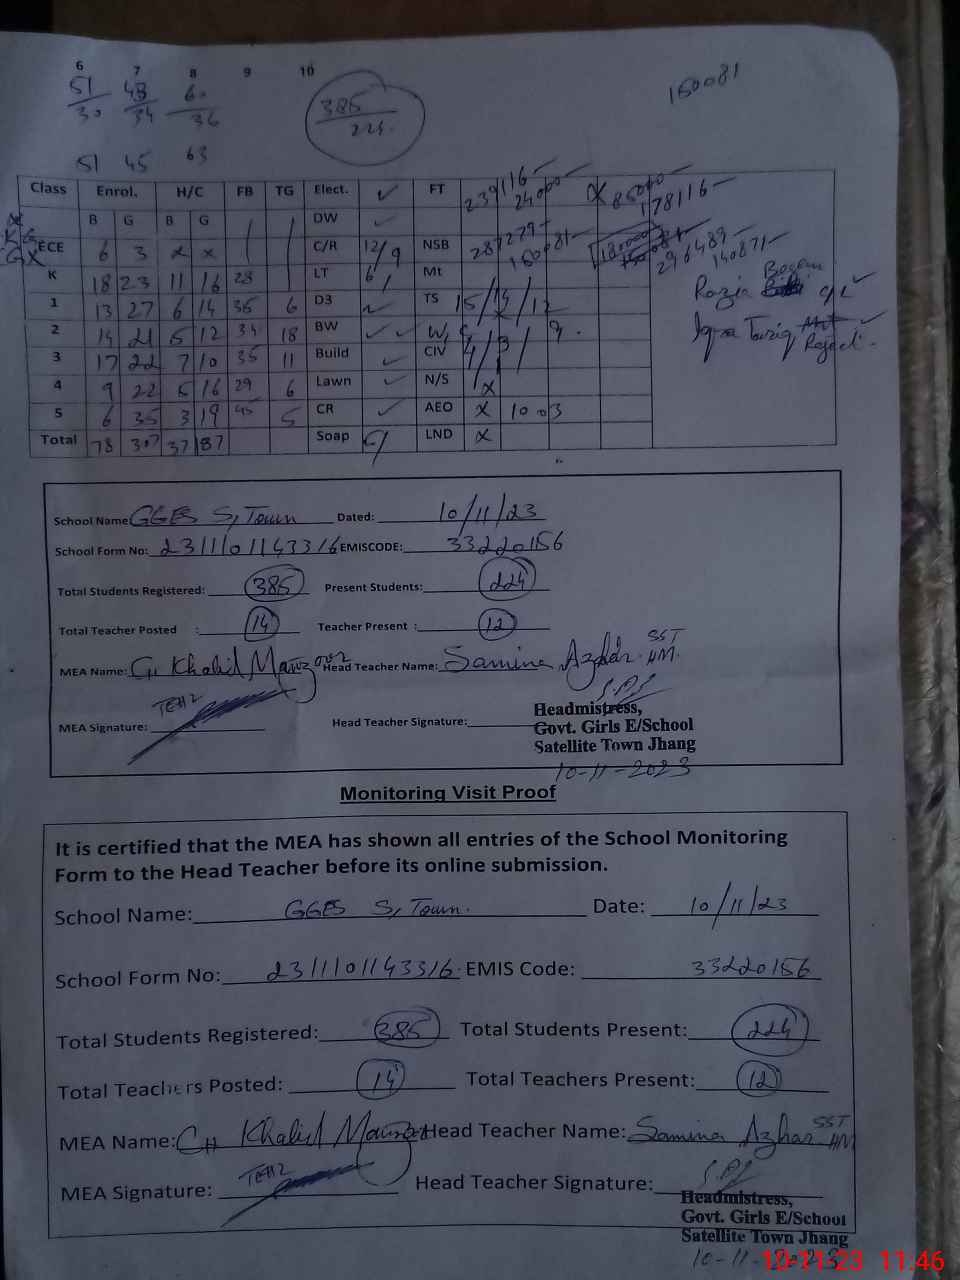 6 7 8 9 10
51/30 43/34 60/36 385/224 150081
51 45 63
Class Enrol. H/C FB TG Elect. ✓ FT 239116 24000 85000 178116
B G B G DW ✓
ECE 6 3 x x C/R 12/9 NSB 287279 150081 296489 140871
K 18 23 11 16 28 LT 6 Mt Razia Begum
1 13 27 6 14 35 6 D3 TS 15/14/12
2 14 21 5 12 34 18 BW ✓ ✓ Iqra Tariq
3 17 22 7 10 35 11 Build ✓ CIV 4/3/
4 9 22 5 16 29 6 Lawn ✓ N/S x
5 6 35 3 19 45 5 CR ✓ AEO x 1003
Total 78 307 37 187 Soap LND x
School Name: GGES S, Town Dated: 10/11/23
School Form No: 2311101143316 EMISCODE: 33220156
Total Students Registered: 385 Present Students: 224
Total Teacher Posted : 14 Teacher Present : 12
MEA Name: Ch Khalid Manzoor Head Teacher Name: Samina Azhar SST HM.
MEA Signature: Head Teacher Signature:
Headmistress,
Govt. Girls E/School
Satellite Town Jhang
10-11-2023
Monitoring Visit Proof
It is certified that the MEA has shown all entries of the School Monitoring
Form to the Head Teacher before its online submission.
School Name: GGES S, Town. Date: 10/11/23
School Form No: 2311101143316 EMIS Code: 33220156
Total Students Registered: 385 Total Students Present: 224
Total Teachers Posted: 14 Total Teachers Present: 12
MEA Name: CH Khalid Manzoor Head Teacher Name: Samina Azhar SST HM
MEA Signature: Head Teacher Signature:
Headmistress,
Govt. Girls E/School
Satellite Town Jhang
10-11-2023
10-11-23 11:46